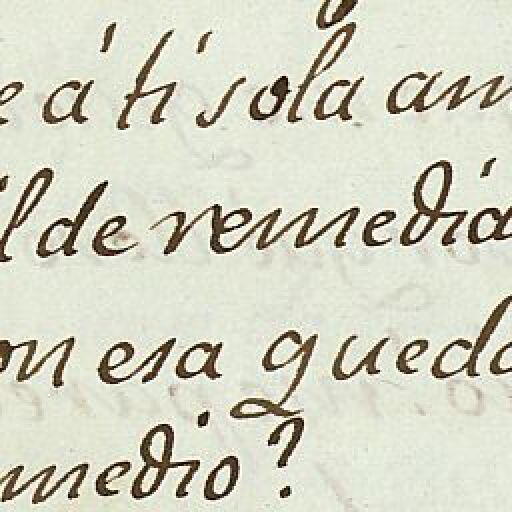 e á ti sola am
l de remediá
on esa queda
medio?